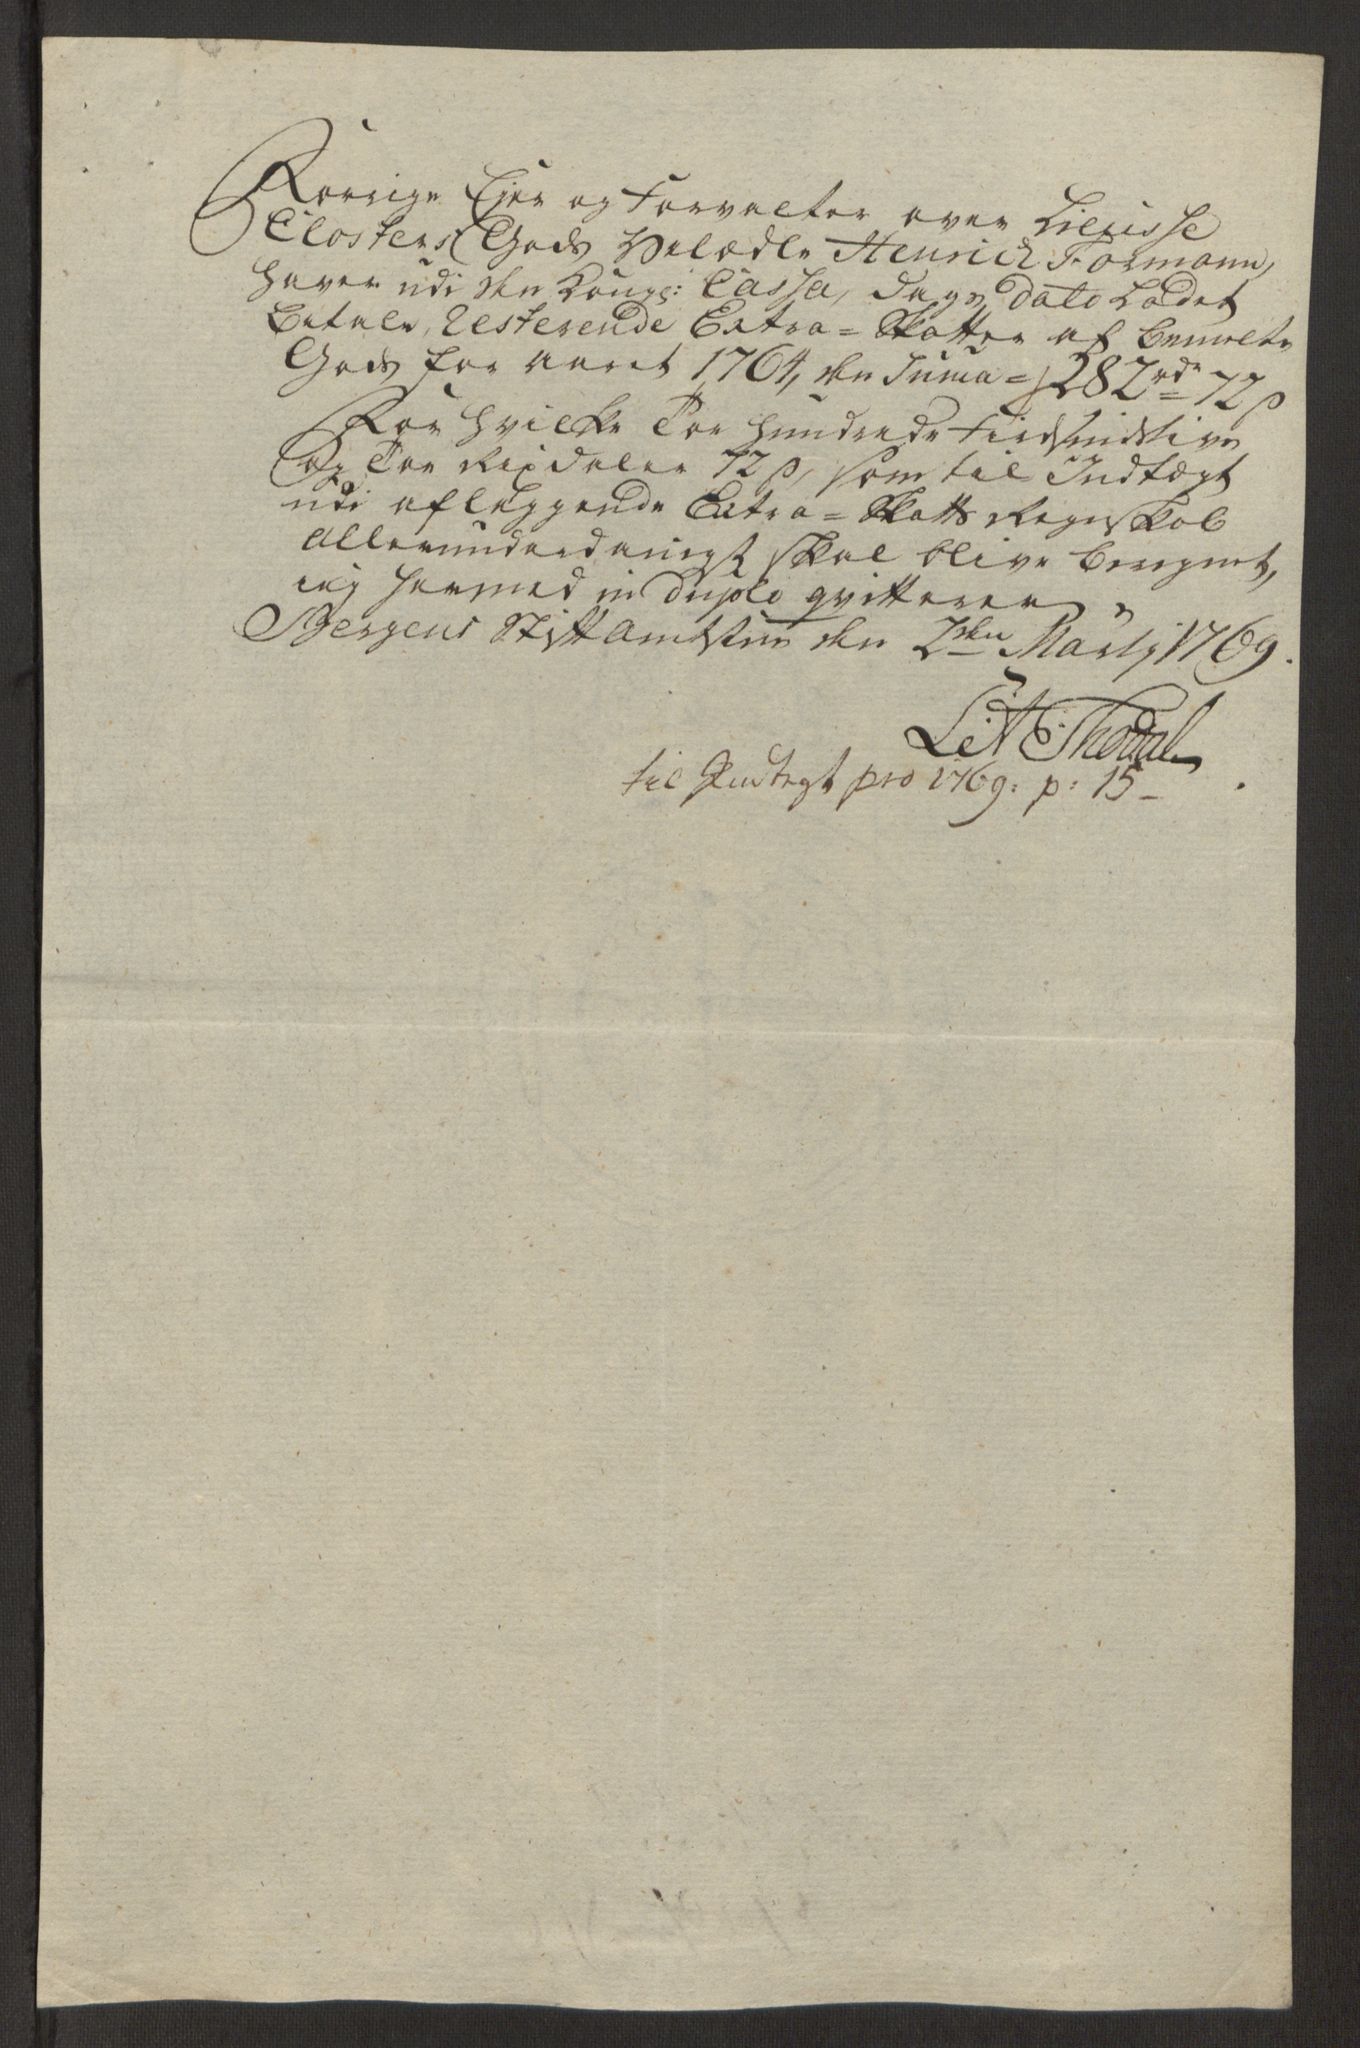 Forrige Ejer og Forvalter over Liеusse
Closters Gods Velædle Henrich Formann,
haver udi den Kongl: Cassa, Dags Dato Ladet
betale, Resterende Extra=Skatter af bemelte
Gods for aaret 1764, den Suma = 282 rdr = 72 β
For hvilke Toe hundrede Fiirdsindstive
Og Toe Rixdaler 72 β, som til Indtægt
udi aflæggende Extra=Skatts Regnskab
allerunderdanigst skal blive beregnet,
ieg hermed in duplo qvitterer,
Bergens Stiftamtstue den 2den Martij 1769.
Thodal
til Indtegt pro 1769: p: 15 –